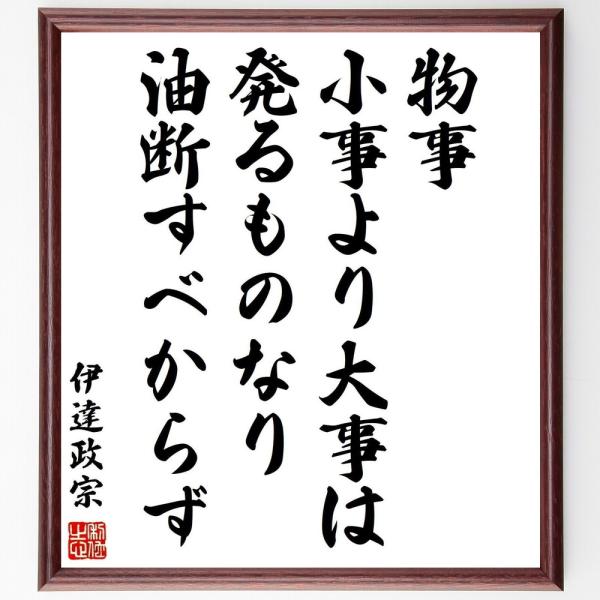 物事
小事より大事は
発るものなり
油断すべからず
伊達政宗